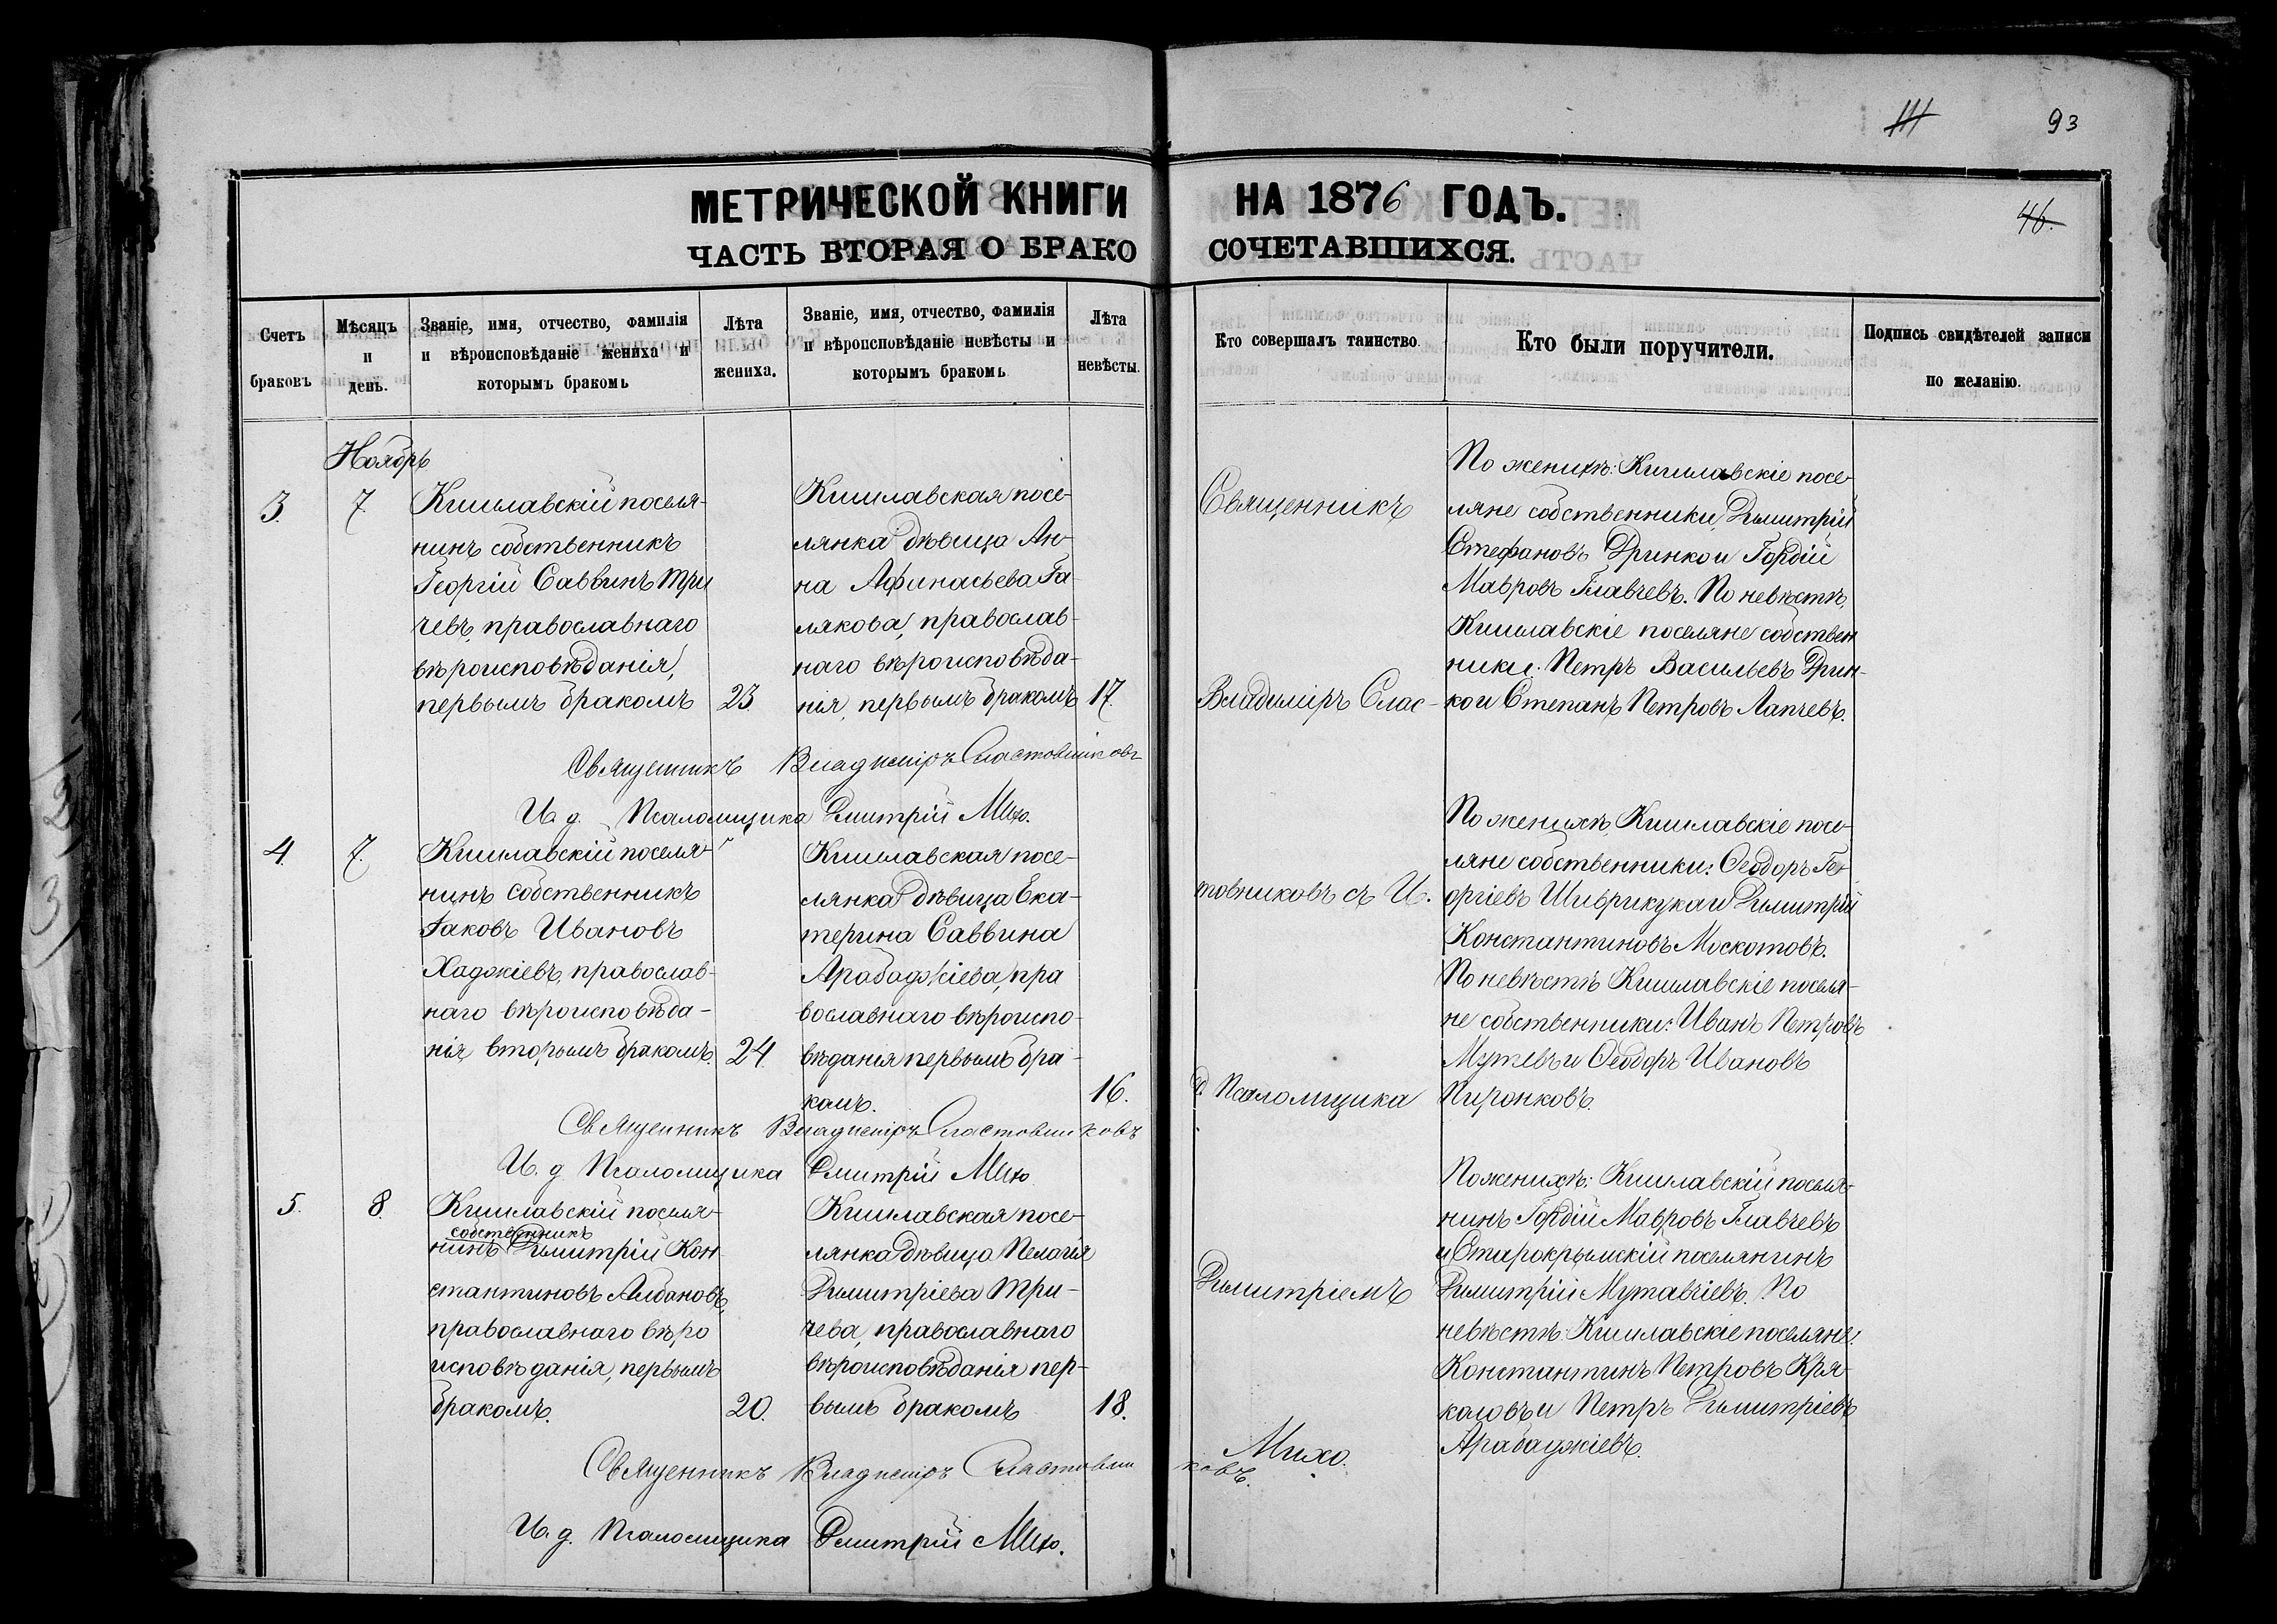 111 93
МЕТРИЧЕСКОЙ КНИГИ НА 1876 ГОДЪ.
46.
ЧАСТЬ ВТОРАЯ О БРАКОСОЧЕТАВШИХСЯ.
Счетъ браковъ
Мѣсяцъ и день.
Званіе, имя, отчество, фамилія
и вѣроисповѣданіе жениха и
которымъ бракомъ
Лѣта
жениха.
Званіе, имя, отчество, фамилія
и вѣроисповѣданіе невѣсты и
которымъ бракомъ
Лѣта
невѣсты.
Кто совершалъ таинство.
Кто были поручители.
Подпись свидѣтелей записи
по желанію.
Ноябрь
3. 7.
Кишлавскій поселя-
нинъ собственникъ
Георгій Саввинъ Три
чевъ, православнаго
вѣроисповѣданія,
первымъ бракомъ
23.
Кишлавская посе-
лянка дѣвица Ан-
на Афинасьева Га-
лякова, православ-
наго вѣроисповѣда-
нія, первымъ бракомъ
17.
Священникъ
Владиміръ Слас-
По женихѣ: Кишлавскіе посе-
ляне собственники Димитрій
Стефановъ Дринко и Гордій
Мавровъ Главчевъ. По невѣстѣ,
Кишлавскіе поселяне собствен
ники: Петръ Васильевъ Дрин-
ко и Степанъ Петровъ Лапчевъ.
Священникъ Владиміръ Сластовниковъ
И. д. Псаломщика Дмитрій Михо.
4. 7.
Кишлавскій поселя-
нинъ собственникъ
Іаковъ Ивановъ
Хаджіевъ, православ-
наго вѣроисповѣда-
нія вторымъ бракомъ.
24.
Кишлавская посе-
лянка дѣвица Ека-
терина Саввина
Арабаджіева, пра
вославнаго вѣроиспо-
вѣданія первымъ бра-
комъ.
16.
товниковъ съ И.
д. Псаломщика
По женихѣ, Кишлавскіе посе-
ляне собственники: Ѳеодоръ Ге-
оргіевъ Шиврикука и Димитрій
Константиновъ Москотовъ.
По невѣстѣ Кишлавскіе поселя-
не собственники: Иванъ Петровъ
Мутевъ и Ѳеодоръ Ивановъ
Пиронковъ.
Священникъ Владиміръ Сластовниковъ
И. д. Псаломщика Дмитрій Михо
5. 8.
Кишлавскій поселя-
собственникъ
нинъ Димитрій Кон
стантиновъ Албановъ,
православнаго вѣро
исповѣданія, первымъ
бракомъ.
20.
Кишлавская посе-
лянка дѣвица Пелагія
Димитріева Три-
чева, православнаго
вѣроисповѣданія пер-
вымъ бракомъ
18.
Димитріемъ
Михо.
По женихѣ: Кишлавскій поселя-
нинъ Гордій Мавровъ Главчевъ
и Старокрымскій поселянинъ
Димитрій Мутавчіевъ. По
невѣстѣ: Кишлавскіе поселяне:
Константинъ Петровъ Кря-
каловъ и Петръ Димитріевъ
Арабаджіевъ.
Священникъ Владиміръ Сластовниковъ.
И. д. Псаломщика Дмитрій Михо.